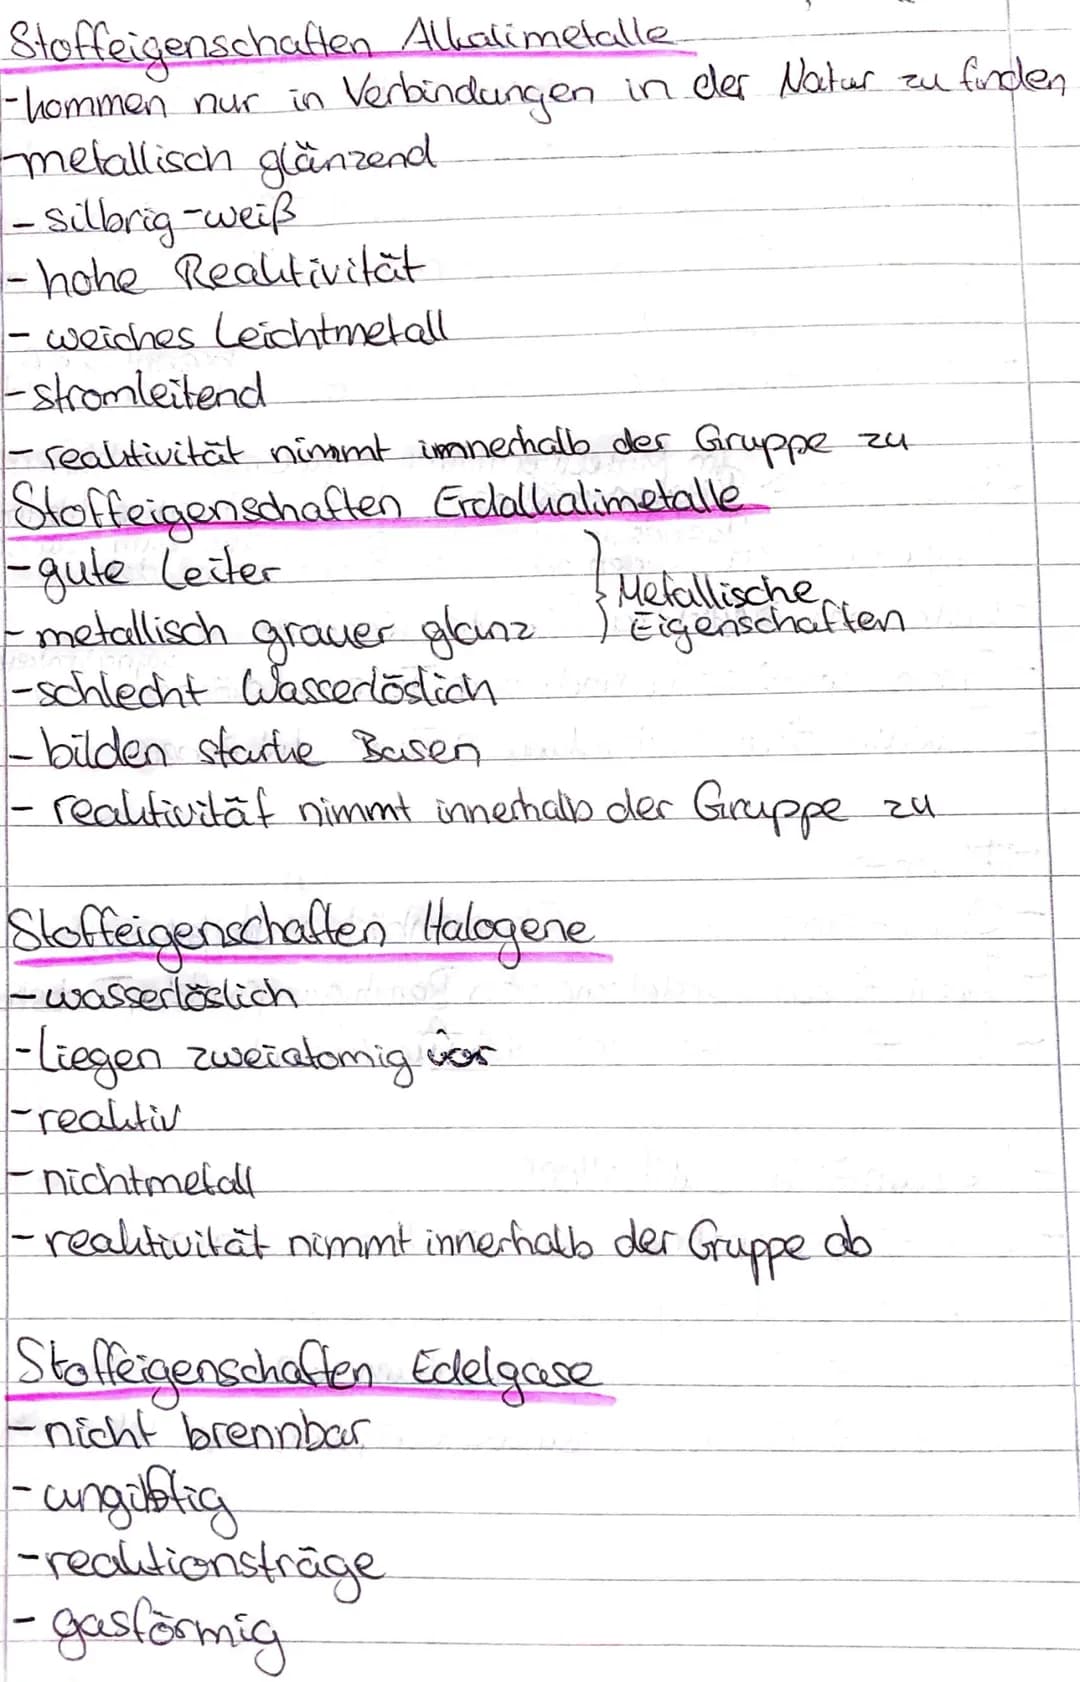 Stoffeigenschaften Alkalimetalle
-kommen nur in Verbindungen in der Natur zu finden
-metallisch glänzend
- silbrig-weiß
- hohe Reaktivität
- weiches Leichtmetall
-stromleitend
- reaktivität nimmt innerhalb der Gruppe zu
Stoffeigenschaften Erdalkalimetalle
-gute Leiter
- metallisch grauer glanz } Metallische Eigenschaften
-schlecht Wasserlöslich
- bilden starke Basen
- reaktivität nimmt innerhalb der Gruppe zu
Stoffeigenschaften Halogene
- wasserlöslich
-liegen zweiatomig vor
-reaktiv
- nichtmetall
- reaktivität nimmt innerhalb der Gruppe ab
Stoffeigenschaften Edelgase
- nicht brennbar
- ungiftig
- reaktionsträge
- gasförmig